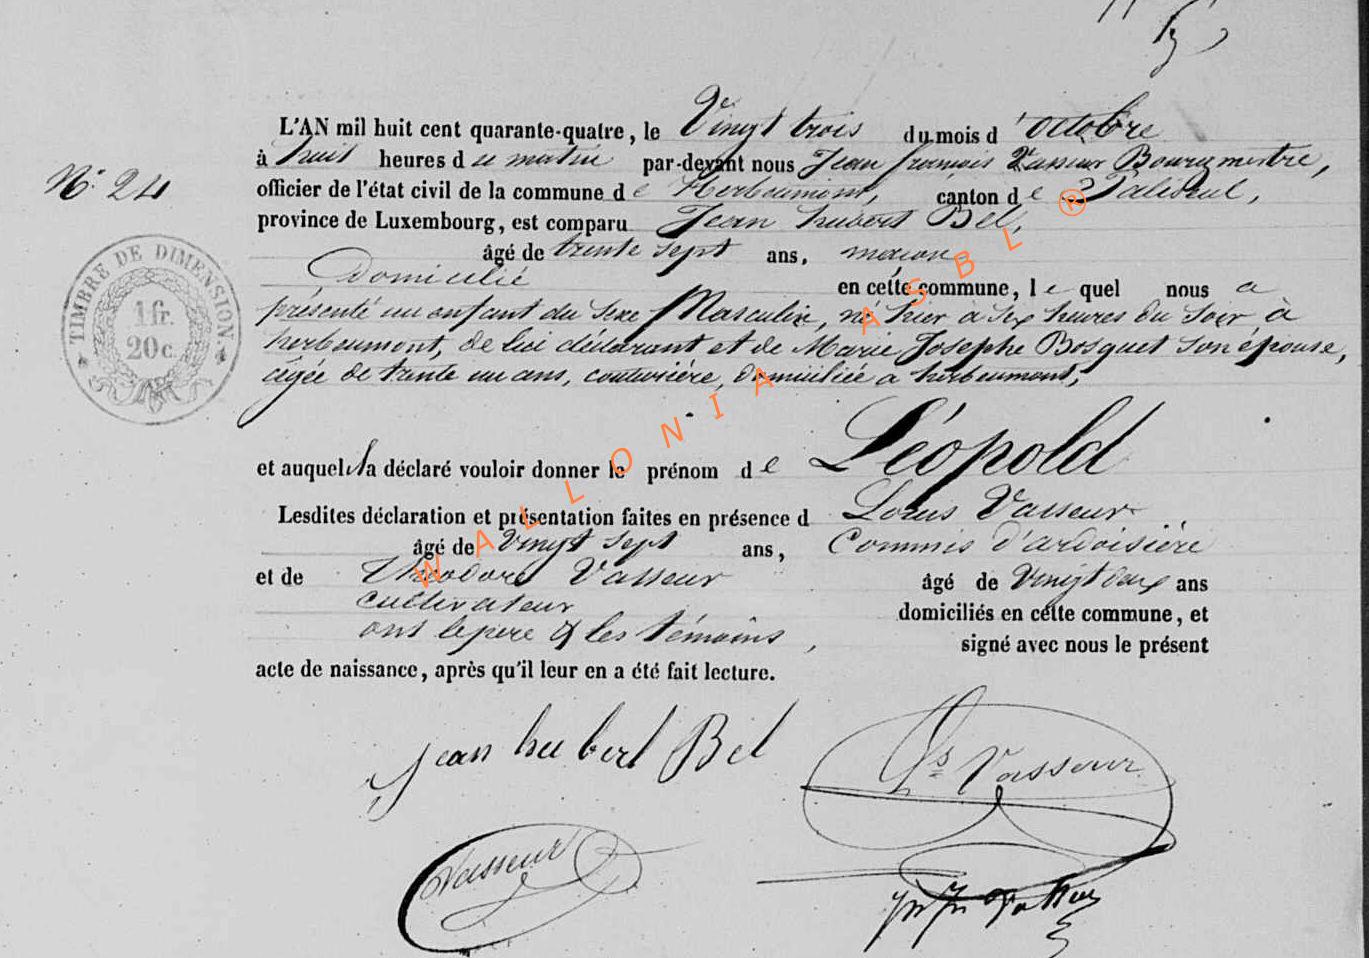 L'AN mil huit cent quarante-quatre, le Vingt trois du mois d'octobre
à huit heures d u matin par-devant nous Jean françois Vasseur Bourgmestre,
N° 24
officier de l'état civil de la commune d e Herbeumont, canton d e Paliseul,
province de Luxembourg, est comparu Jean hubert Bel,
âgé de trente sept ans, maçon
Domicilié en cette commune, l e quel nous a
présenté un enfant du sexe Masculin, né hier à six heures du soir à
herbeumont, de lui déclarant et de Marie Josephe Bosquet son épouse,
agée de trente un ans, couturière, domiciliée a herbeumont,
et auquel il a déclaré vouloir donner le prénom d e Léopold
Lesdites déclaration et présentation faites en présence d Louis Vasseur
âgé de Vingt sept ans, Commis d'ardoisière
et de Théodore Vasseur âgé de Vingt deux ans
cultivateur domiciliés en cette commune, et
ont le pere & les témoins, signé avec nous le présent
acte de naissance, après qu'il leur en a été fait lecture.
TIMBRE DE DIMENSION.
1 fr.
20 c.
jean hubert Bel
Ls Vasseur
Vasseur
WALLONIA ASBL ®